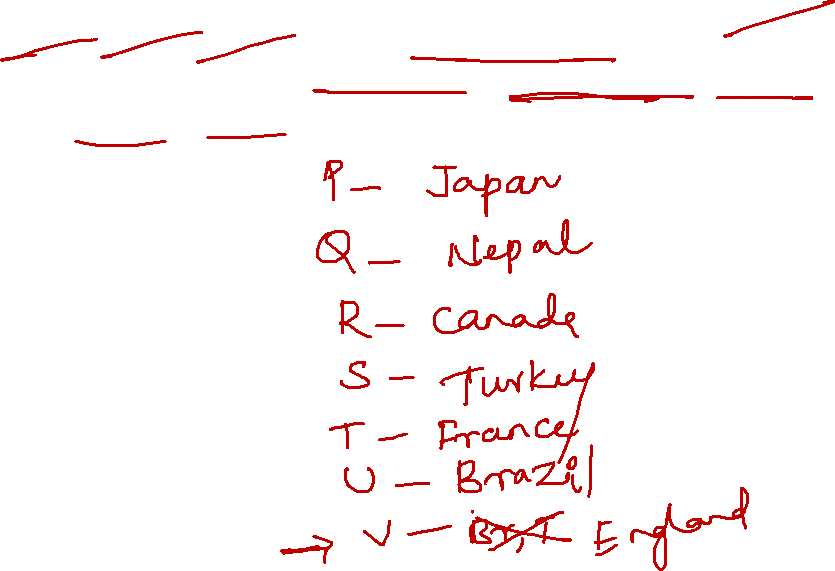 P - Japan
Q - Nepal
R - Canada
S - Turkey
T - France
U - Brazil
→ V - England